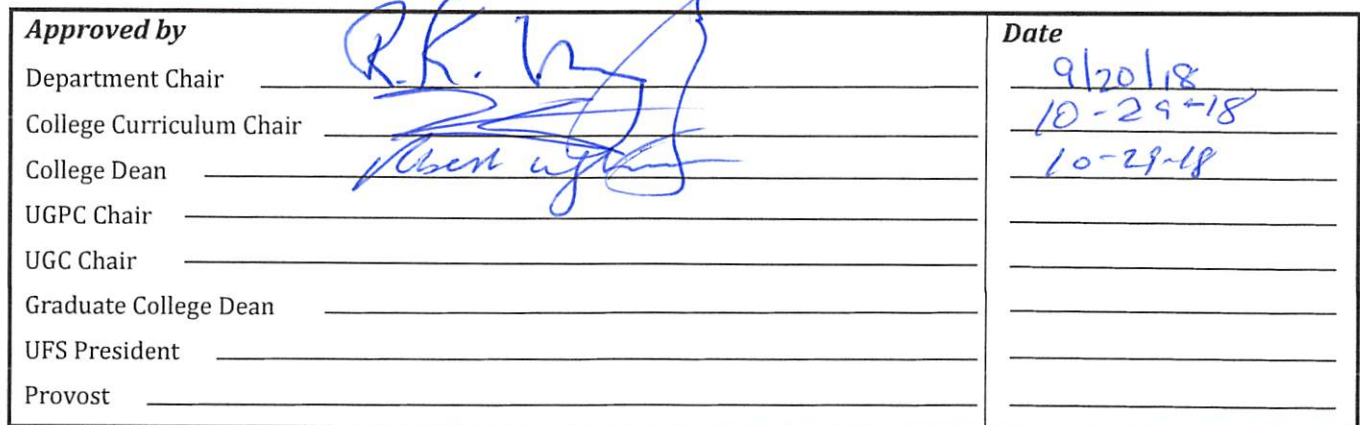 Approved by Date
Department Chair R.K. 9/20/18
College Curriculum Chair 10-29-18
College Dean 10-29-18
UGPC Chair
UGC Chair
Graduate College Dean
UFS President
Provost